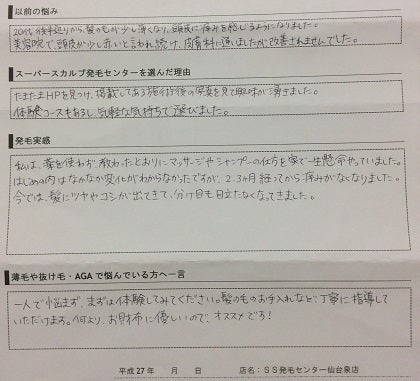 以前の悩み
20代後半辺りから、髪のもが少し薄くなり、頭皮に痛みを感じるようになりました。
美容院で、頭皮が少し赤いと言われ続け、皮膚科に通いましたが改善されませんでした。
スーパースカルプ発毛センターを選んだ理由
たまたまHPを見つけ、掲載してある施術後の写真を見て興味が湧きました。
体験コースもあるし、気軽な気持ちで選びました。
発毛実感
私は、薬を使わず教わったとおりにマッサージやシャンプーの仕方を家で一生懸命やっていました。
はじめの内はなかなか変化がわからなかったですが、2.3ヶ月経ってから痛みがなくなりました。
今では、髪にツヤやコシが出てきて、分け目も目立たなくなってきました。
薄毛や抜け毛・AGAで悩んでいる方へ一言
一人で悩まず、まずは体験してみてください。髪の毛のお手入れなど、丁寧に指導して
いただけます。何より、お財布に優しいので、オススメです!
平成27年 月 日 店名：SS発毛センター仙台泉店